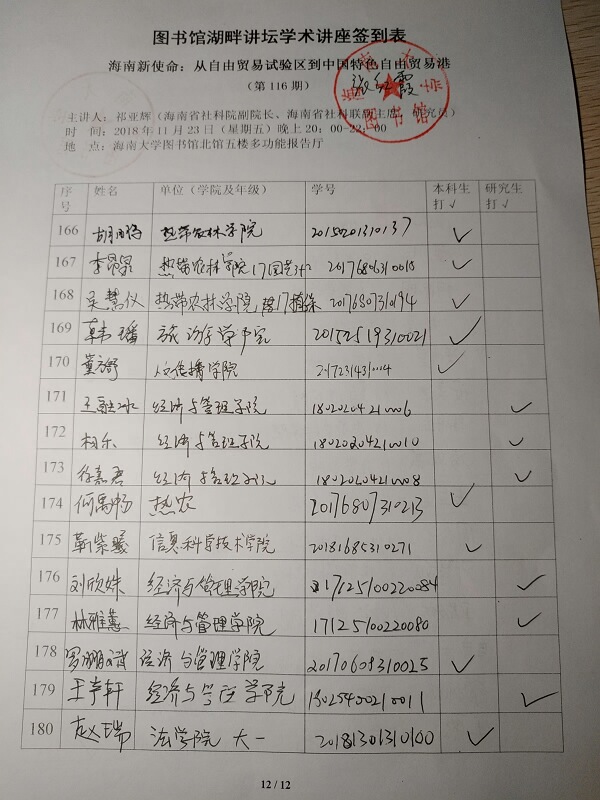 图书馆湖畔讲坛学术讲座签到表
海南新使命：从自由贸易试验区到中国特色自由贸易港
（第 116 期）
主讲人：祁亚辉（海南省社科院副院长、海南省社科联副主席、研究员）
时 间：2018 年 11 月 23 日（星期五）晚上 20：00-22：00
地 点：海南大学图书馆北馆五楼多功能报告厅
图书馆
序号 姓名 单位（学院及年级） 学号 本科生打√ 研究生打√
166 热带农林学院 20150201310137 √
167 李昂星 热带农林学院17园艺 20176806310018 √
168 吴慧仪 热带农林学院 17植保 20176807310194 √
169 韩璠 旅游学院 20152519310021 √
170 董方舒 人文传播学院 √
171 经济与管理学院 18020204210006 √
172 柯乐 经济与管理学院 18020204210010 √
173 徐嘉君 经济与管理学院 18020204210008 √
174 何禹畅 热农 20176807310213 √
175 靳紫暖 信息科学技术学院 20181685310271 √
176 刘欣姝 经济与管理学院 17125100220084 √
177 林雅蕙 经济与管理学院 17125100220080 √
178 罗鹏斌 经济与管理学院 20170608310025 √
179 王宇轩 经济与管理学院 √
180 赵瑞 法学院 大一 20181301310100 √
12 / 12